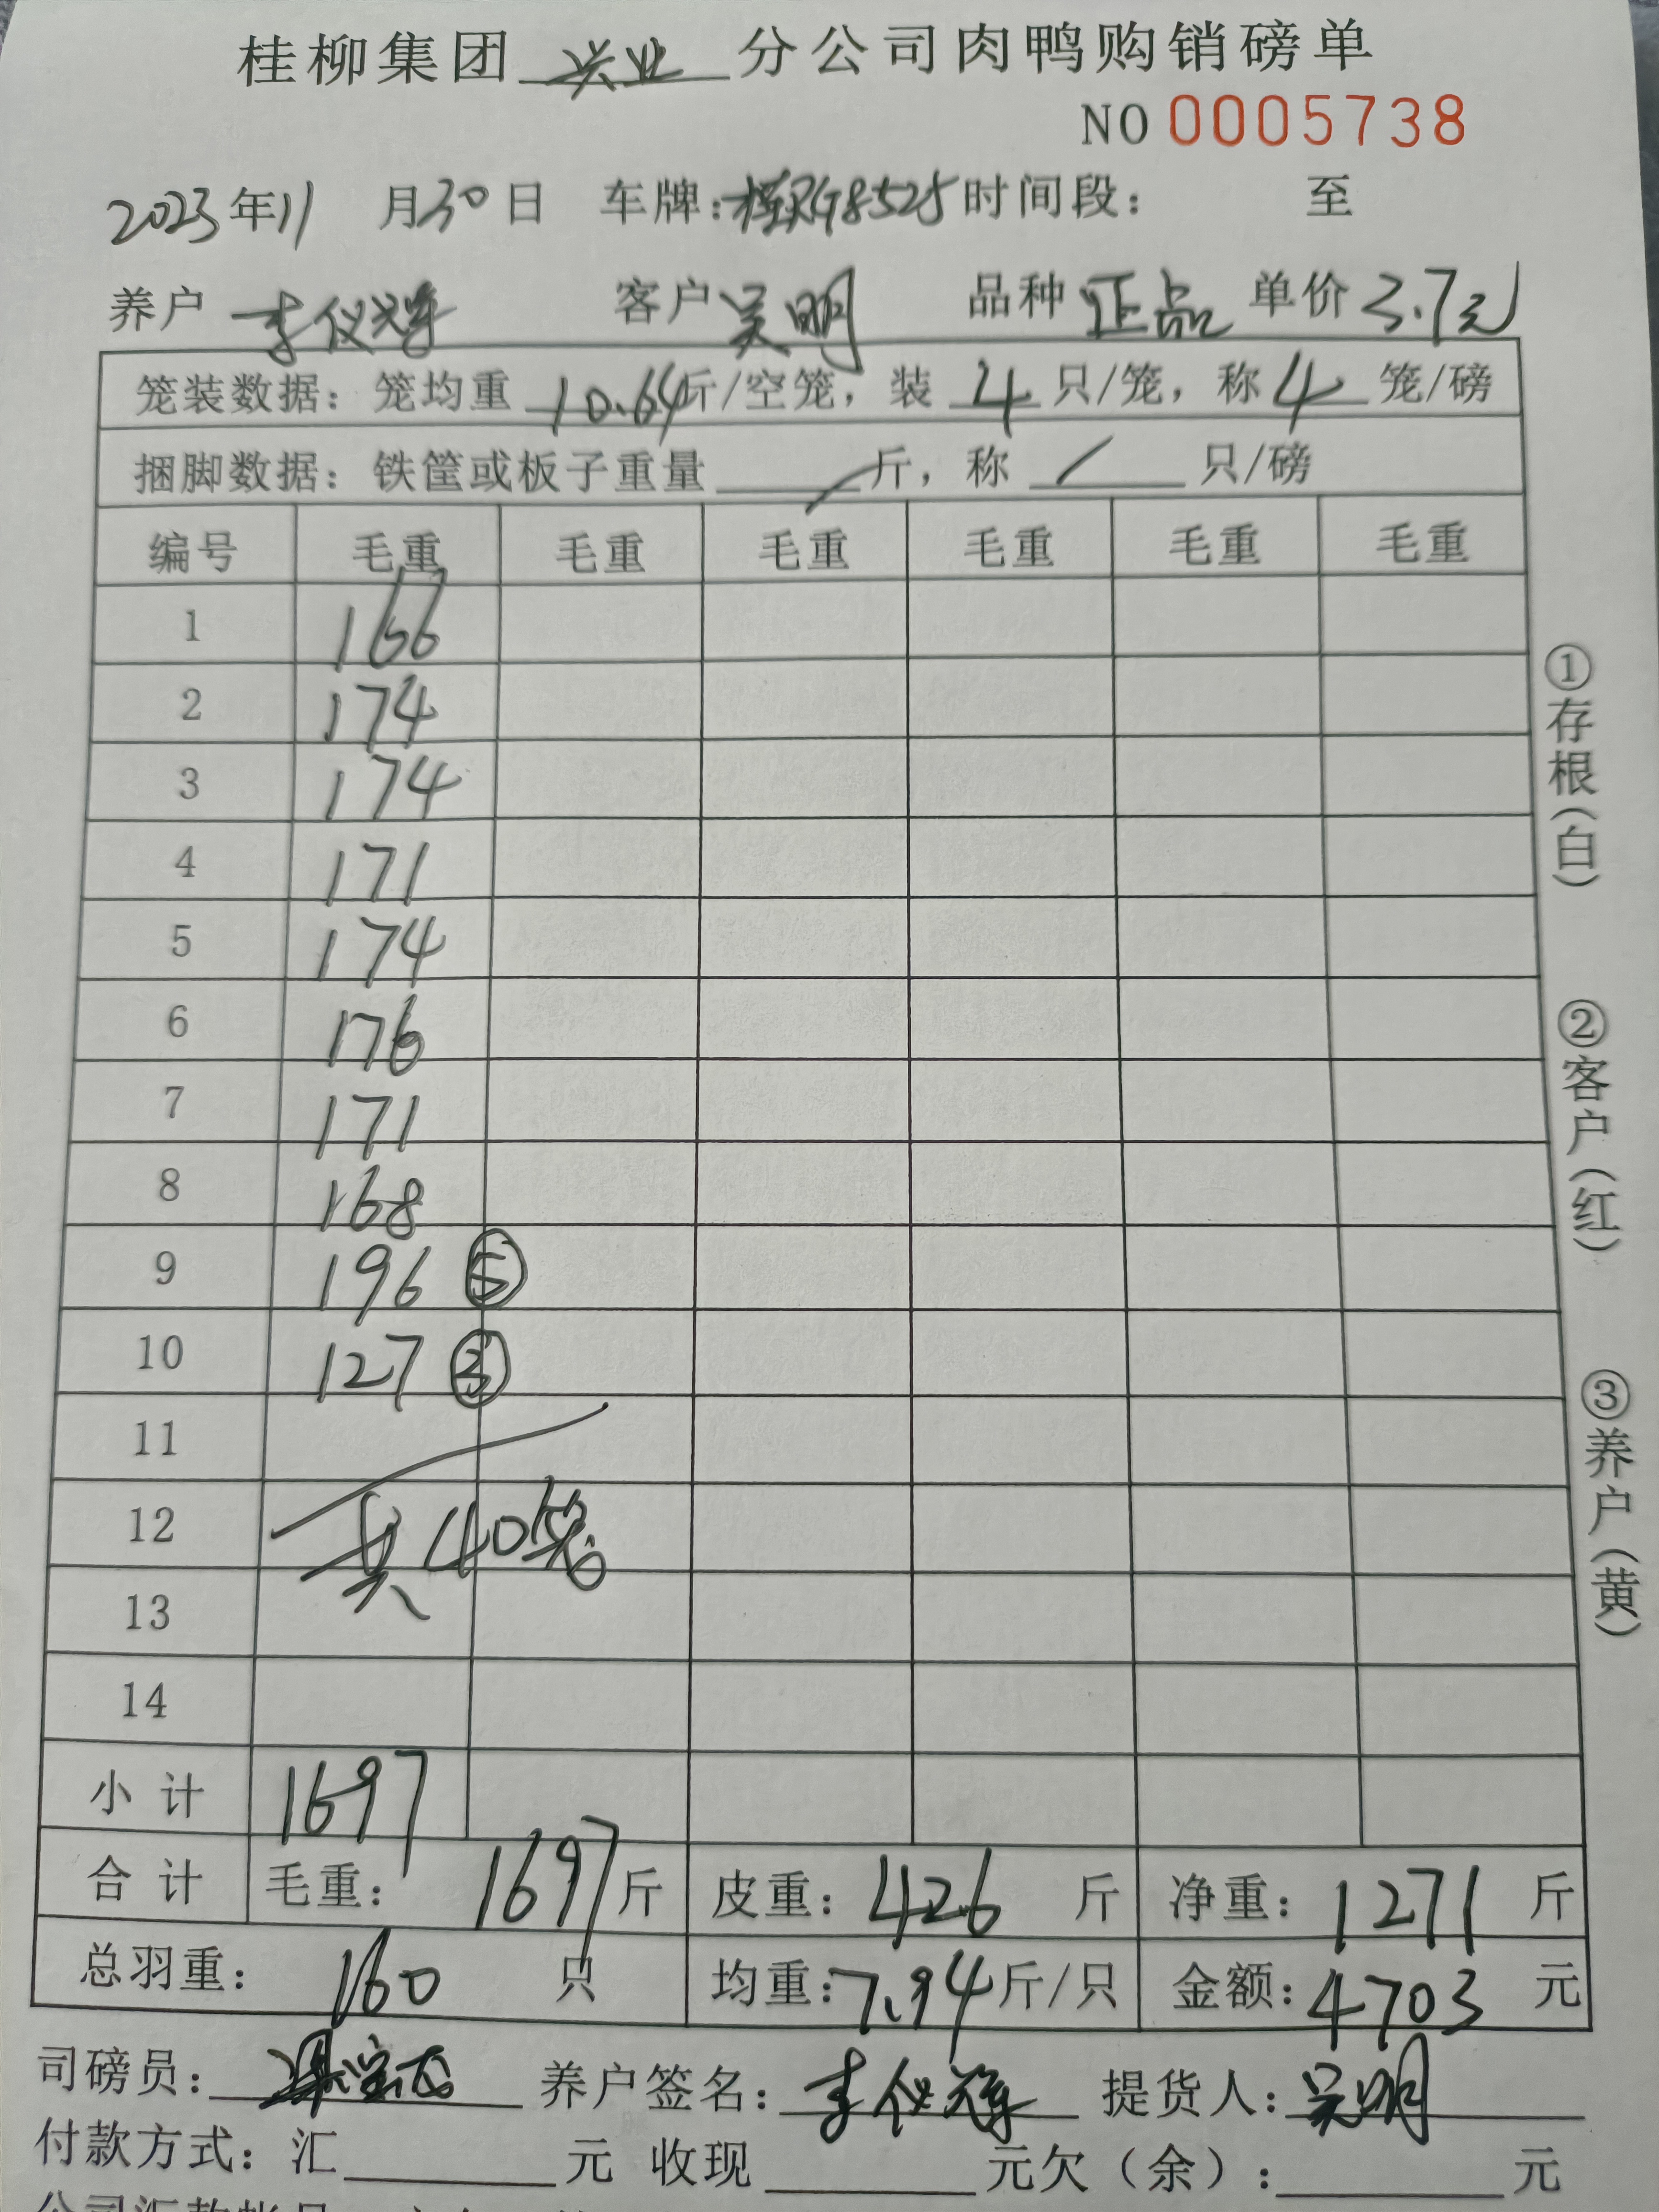 桂柳集团 兴业 分公司肉鸭购销磅单
NO 0005738
2023年11月30日 车牌:桂RG8525 时间段: 至
养户 李仪辉 客户 吴明 品种 正品 单价 3.7元
笼装数据: 笼均重 10.64斤/空笼, 装 4 只/笼, 称 4 笼/磅
捆脚数据: 铁筐或板子重量 / 斤, 称 / 只/磅
编号 毛重 毛重 毛重 毛重 毛重 毛重
1 166
2 174
3 174
4 171
5 174
6 176
7 171
8 168
9 196 ⑤
10 127 ③
11
12 共40笼
13
14
小计 1697
合计 毛重: 1697斤 皮重: 426 斤 净重: 1271 斤
总羽重: 160 只 均重: 7.94斤/只 金额: 4703 元
司磅员: 养户签名: 李仪辉 提货人: 吴明
付款方式: 汇 元 收现 元欠(余): 元
①存根(白)
②客户(红)
③养户(黄)